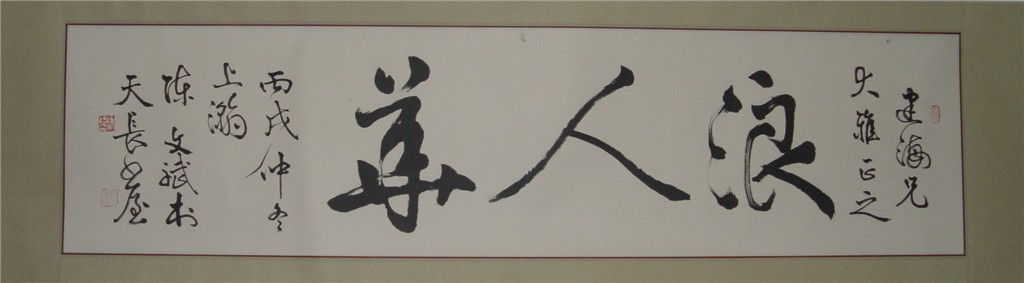 建海兄
大雅正之
浪人華
丙戌仲冬
上瀚
陈文斌於
天長書屋